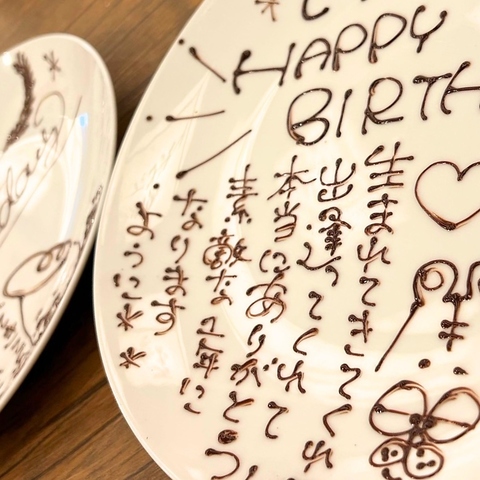 HAPPY
BIRTH
生まれてきてくれ
出逢ってくれて
本当にありがとう
素敵な一年に
なります
ように
day